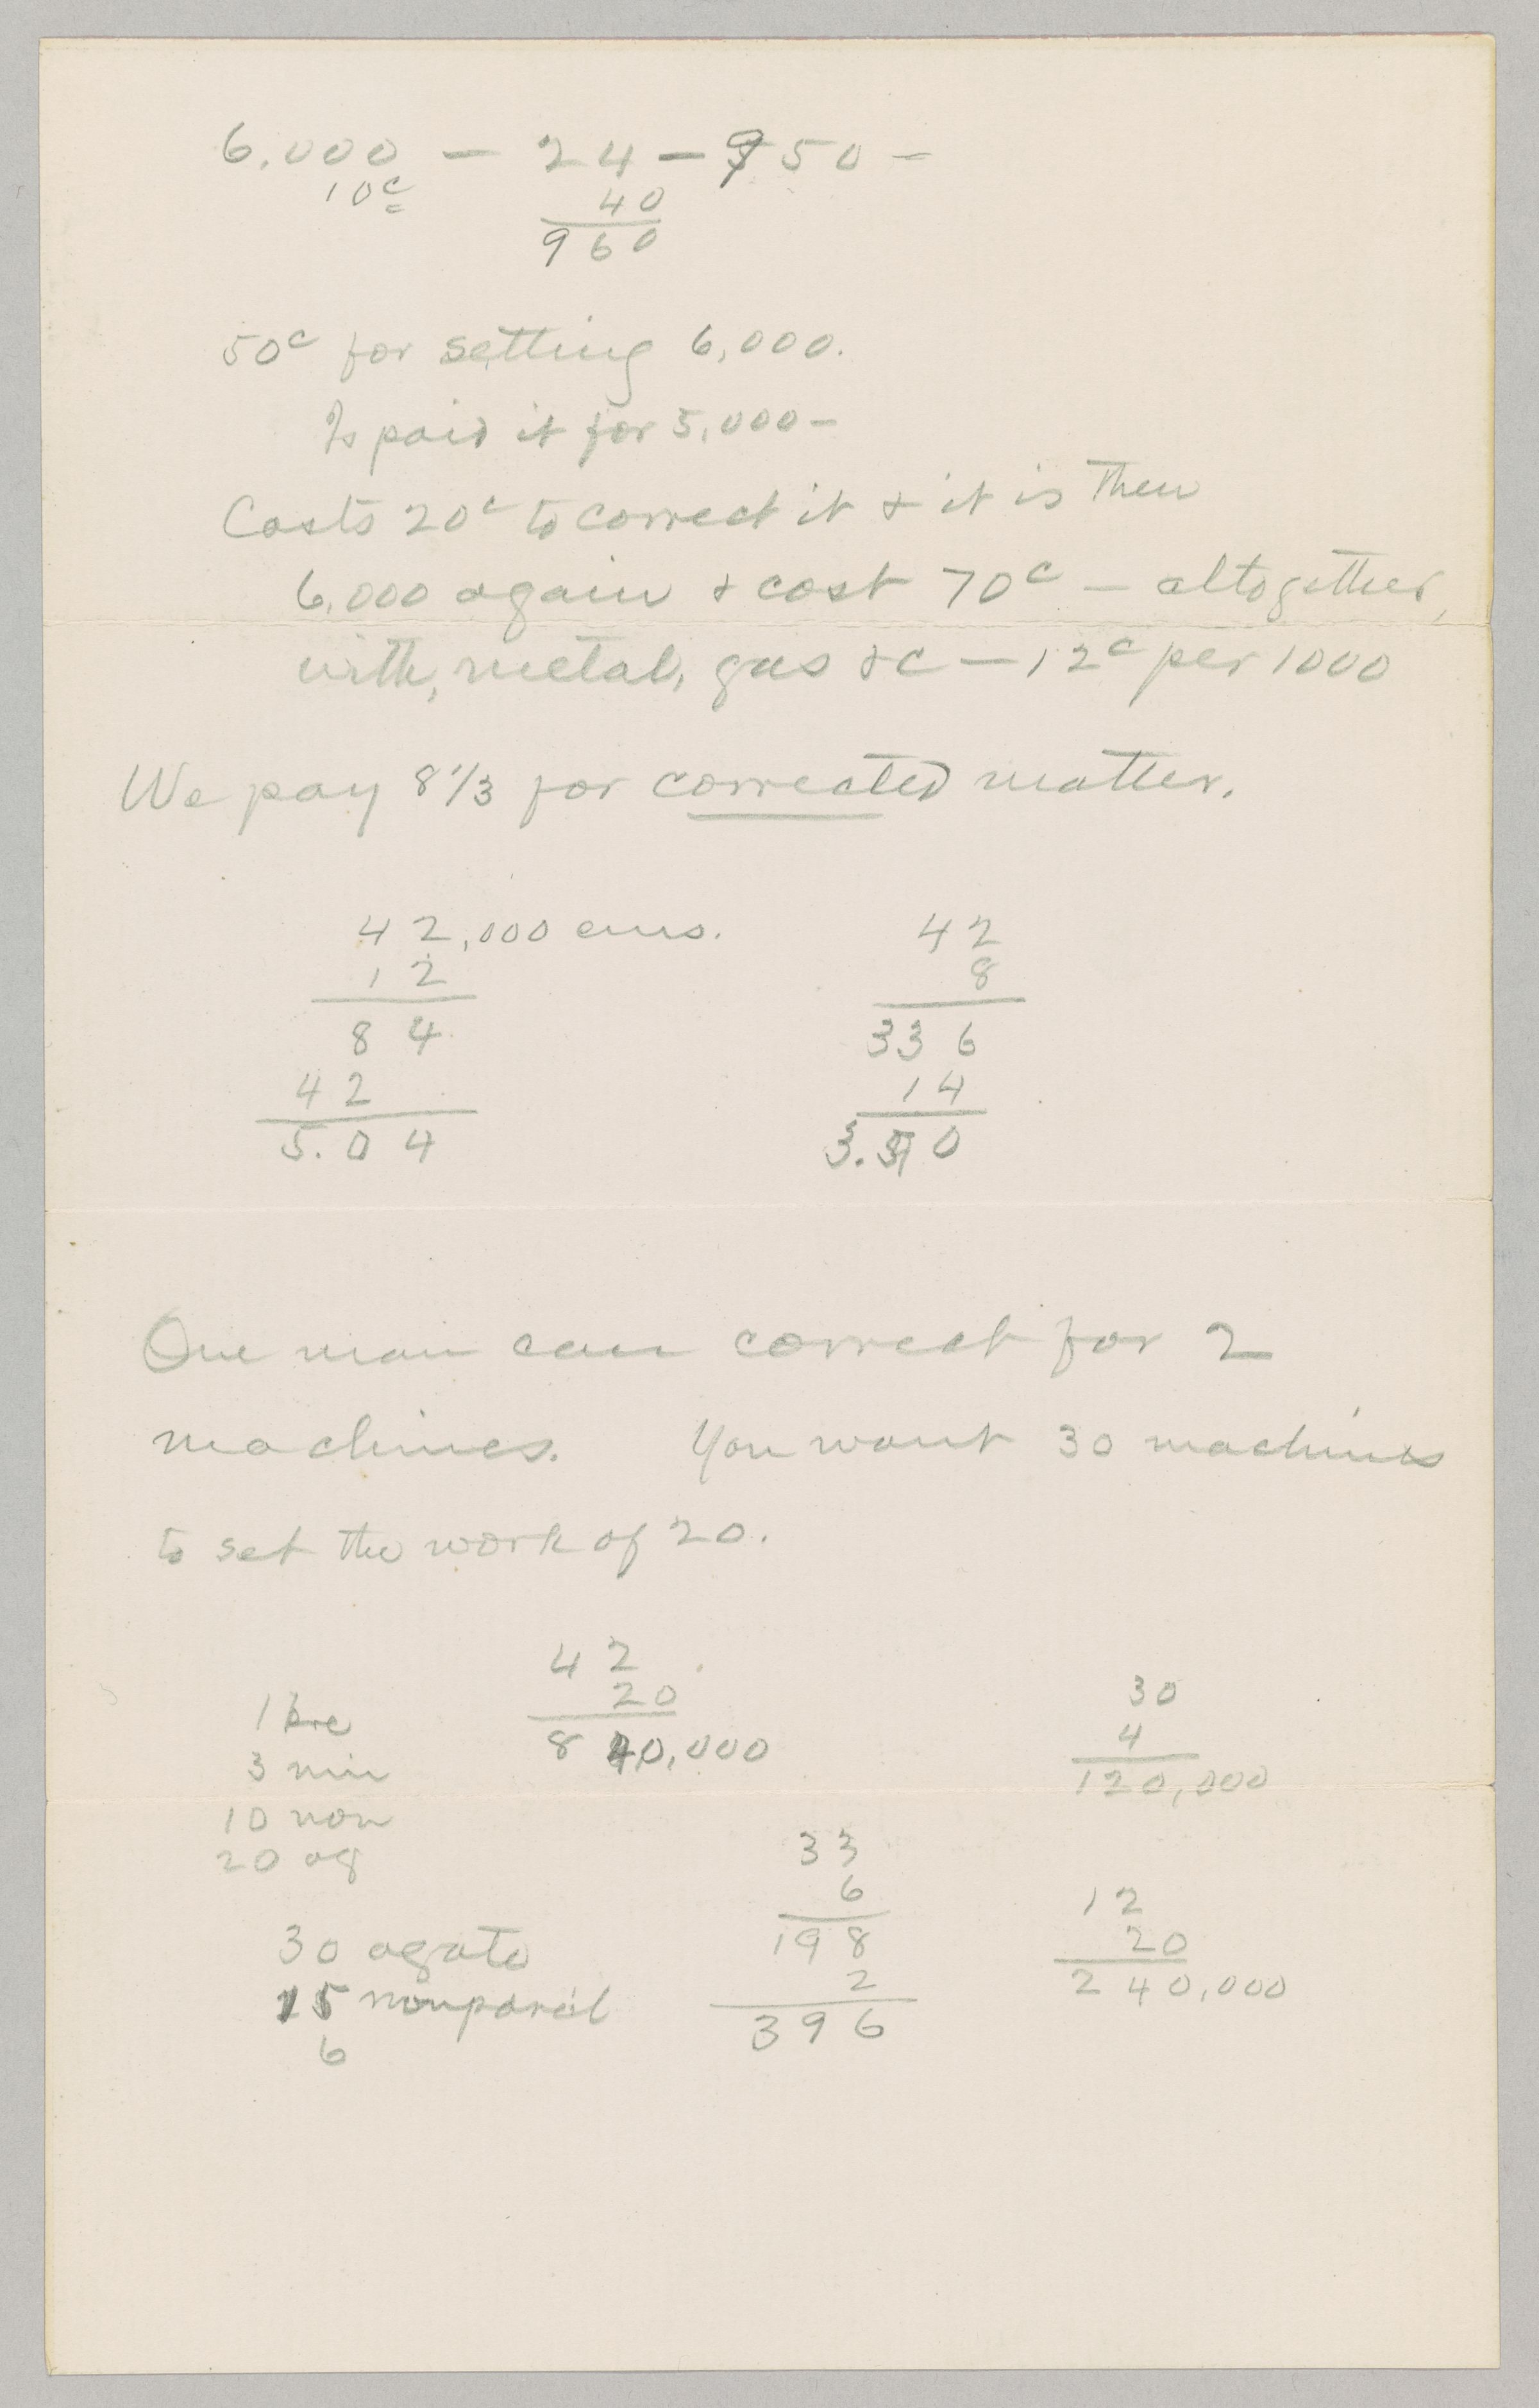 6.000 — 24 — 950 —
10c 40
960
50c for setting 6,000.
Is paid it for 5,000 —
Costs 20c to correct it & it is then
6,000 again & cost 70c — altogether,
with, metal, gas &c — 12c per 1000
We pay 8 1/3 for corrected matter.
42,000 ems. 42
12 8
84 336
42 14
5.04 3.50
One man can correct for 2
machines. You want 30 machines
to set the work of 20.
42
20 30
1 840,000 4
3 min 120,000
10 non
20 ag 33
6 12
30 agate 198 20
15 nonpareil 2 240,000
6 396